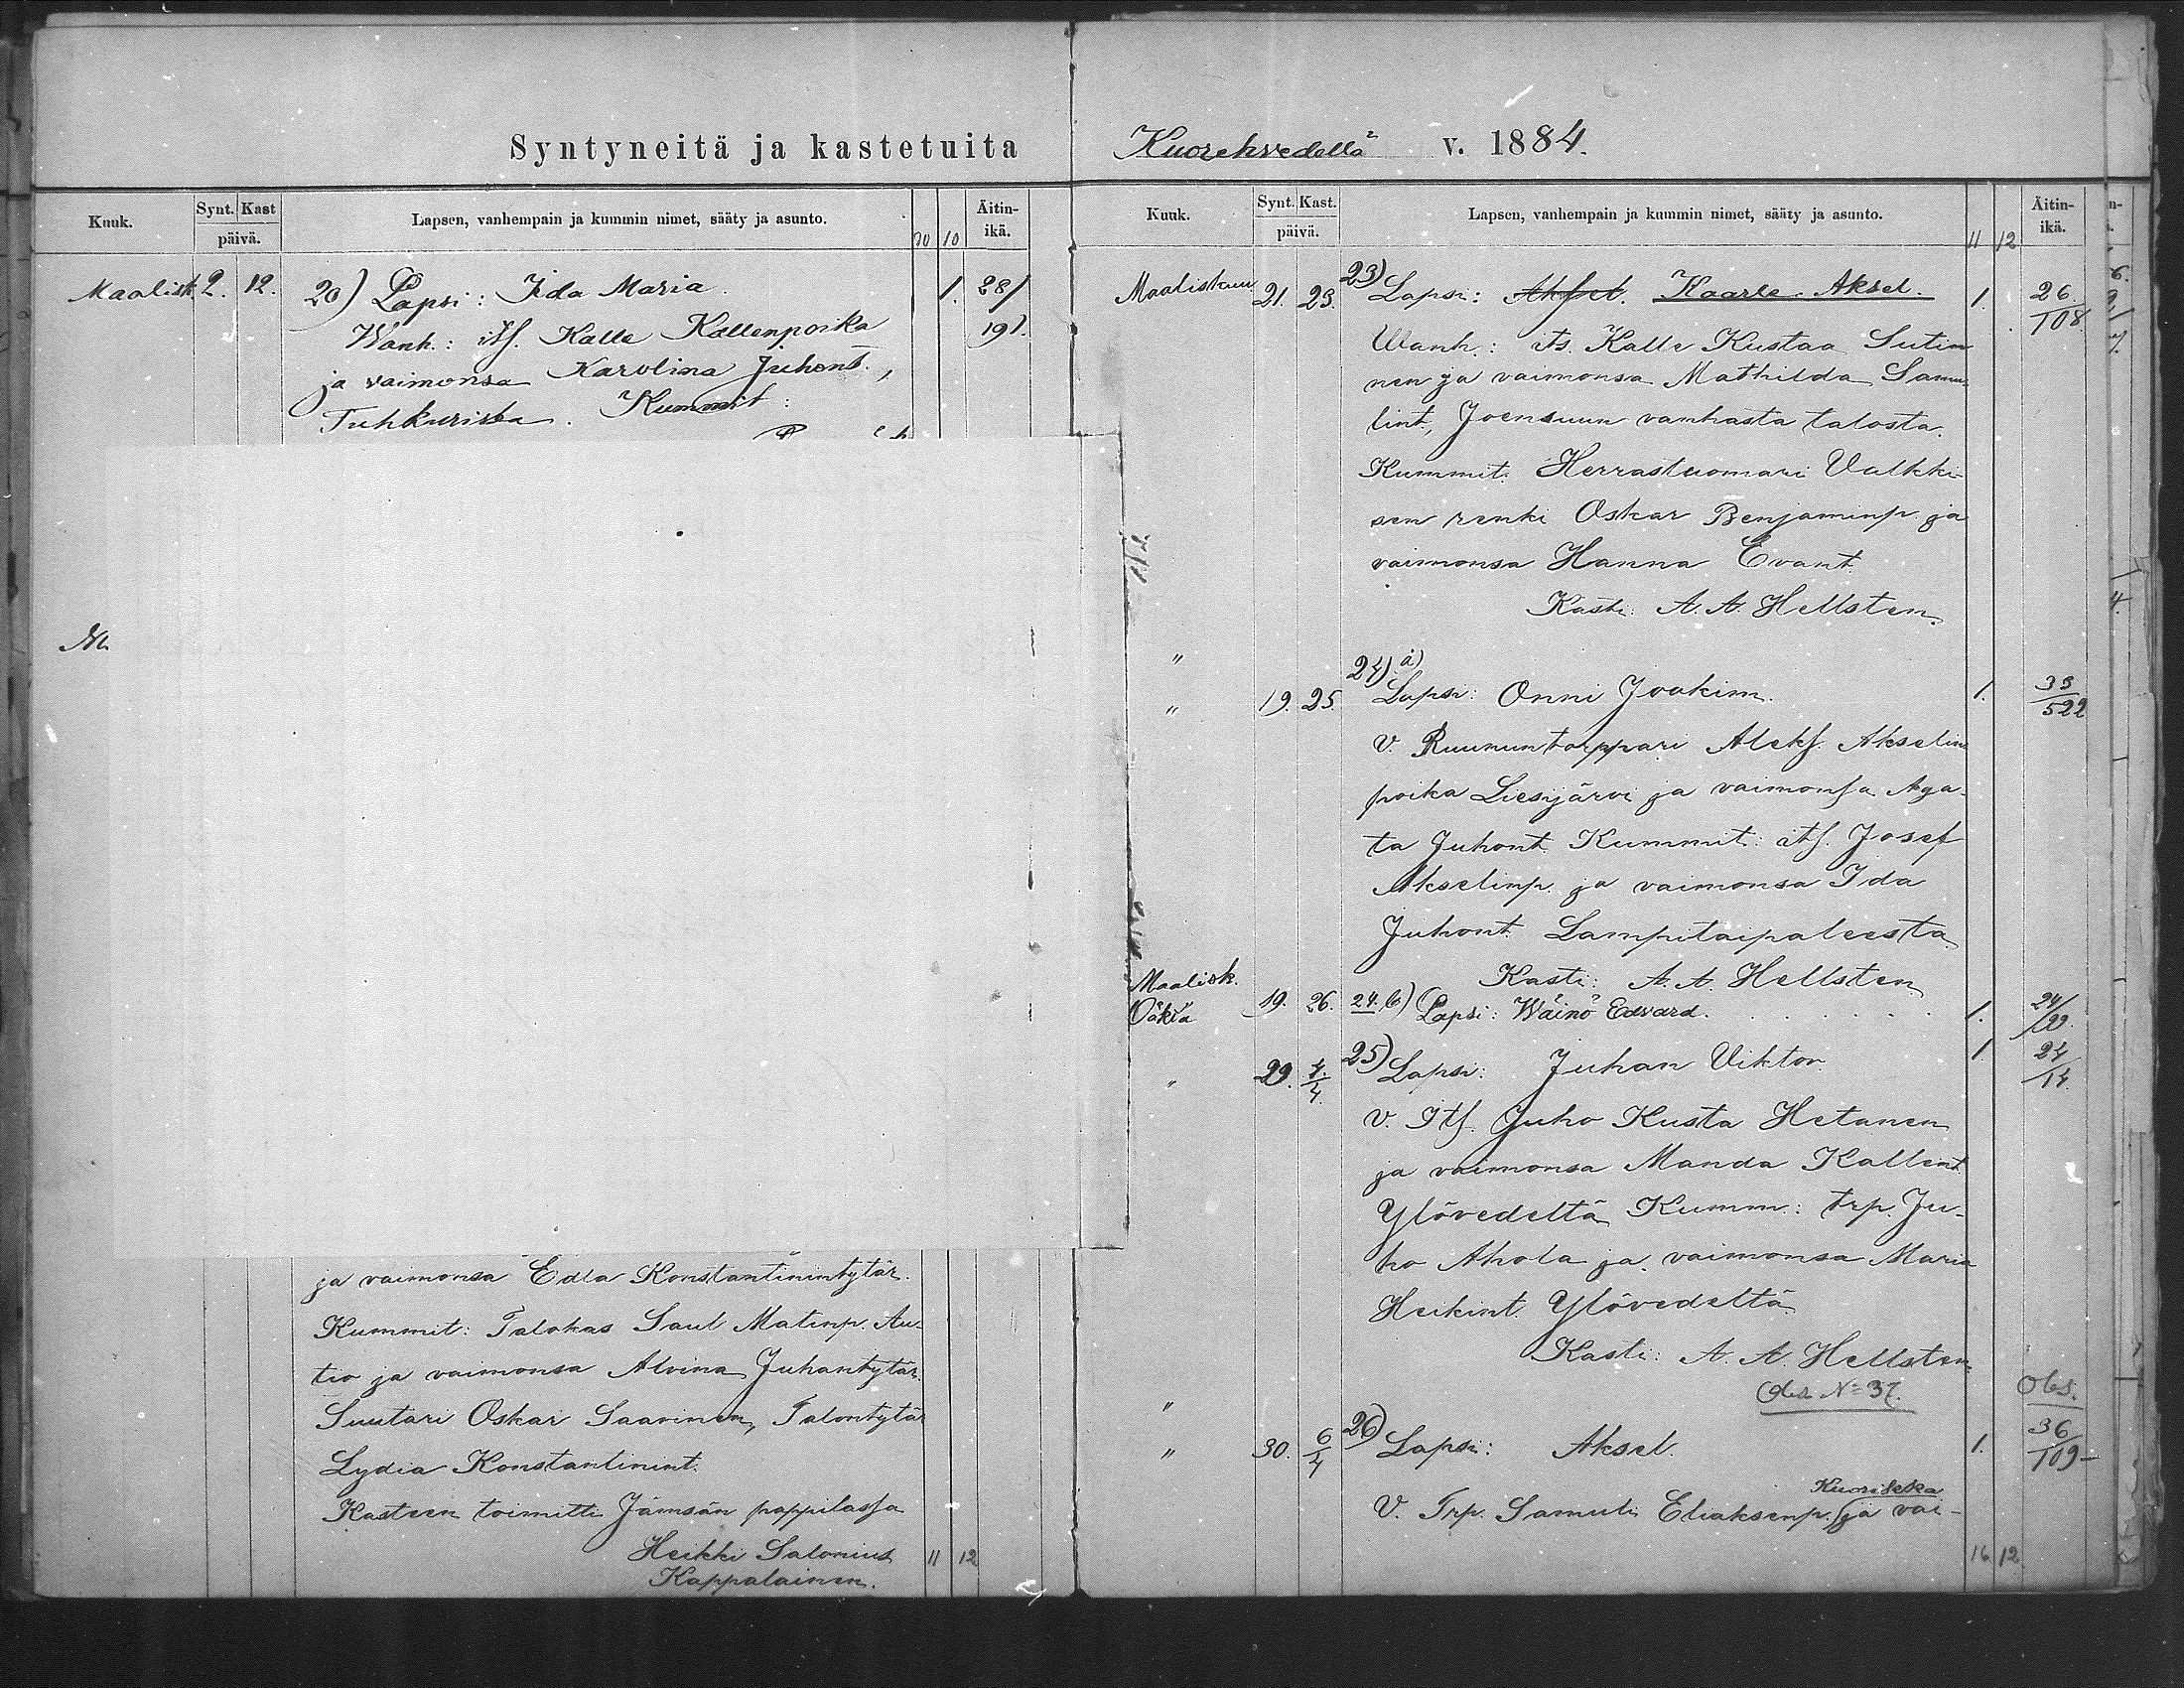 Syntyneitä ja kastetuita
Kuuk.
Synt. Kast
päivä.
Lapsen, vanhempain ja kummin nimet, sääty ja asunto.
10
Äitin-
ikä.
Maalisk. 2. 12. 20) Lapsi: Ida Maria. 1. 28/
Wanh.: itf. Kalle Kallenpoika 191.
ja vaimonsa Karolina Juhont.,
Tuhkurista. Kummit:
M
ja vaimonsa Edla Konstantinintytär.
Kummit: Talokas Saul Matinp. Au-
tio ja vaimonsa Alvina Juhantytär.
Suutari Oskar Saarinen, Talontytär
Lydia Konstantinint.
Kasteen toimitti Jämsän pappilassa
Heikki Salonius 11 12
Kappalainen.
Kuorehvedellä v. 1884.
Kuuk.
Synt. Kast.
päivä.
Lapsen, vanhempain ja kummin nimet, sääty ja asunto.
11 12
Äitin-
ikä.
Maaliskuu 21. 23. 23) Lapsi: Aksel. Kaarle Aksel. 1. 26/108
Wanh.: its. Kalle Kustaa Sutin
nen ja vaimonsa Mathilda Samu-
lint., Joensuun vanhasta talosta.
Kummit: Herrastuomari Valkki-
sen renki Oskar Benjaminp. ja
vaimonsa Hanna Evant.
Kasti: A. A. Hellsten.
"
24) a)
" 19. 25. Lapsi: Onni Joakim. 1. 33/522
V. Ruununtorppari Aleks. Akselin
poika Liesijärvi ja vaimonsa Aga-
ta Juhont. Kummit: itf. Josef
Akselinp. ja vaimonsa Ida
Juhont. Lampitaipaleesta
Kasti: A. A. Hellsten
Maalisk. 19. 26. 24.b) Lapsi: Wäinö Edvard. 1. 24/
" 29. 4/4. 25) Lapsi: Juhan Viktor. 1 24/14.
V. Itf. Juho Kusta Hetanen
ja vaimonsa Manda Kallent.
Ylövedeltä Kumm.: trp. Ju-
ho Ahola ja vaimonsa Maria
Heikint. Ylövedeltä
Kasti: A. A. Hellsten.
Obs. N=37. Obs.
"
" 30. 6/4 26) Lapsi: Aksel. 1. 36/109
Kuorikka
V. Trp. Samuli Eliaksenp. ja vai-
16 12